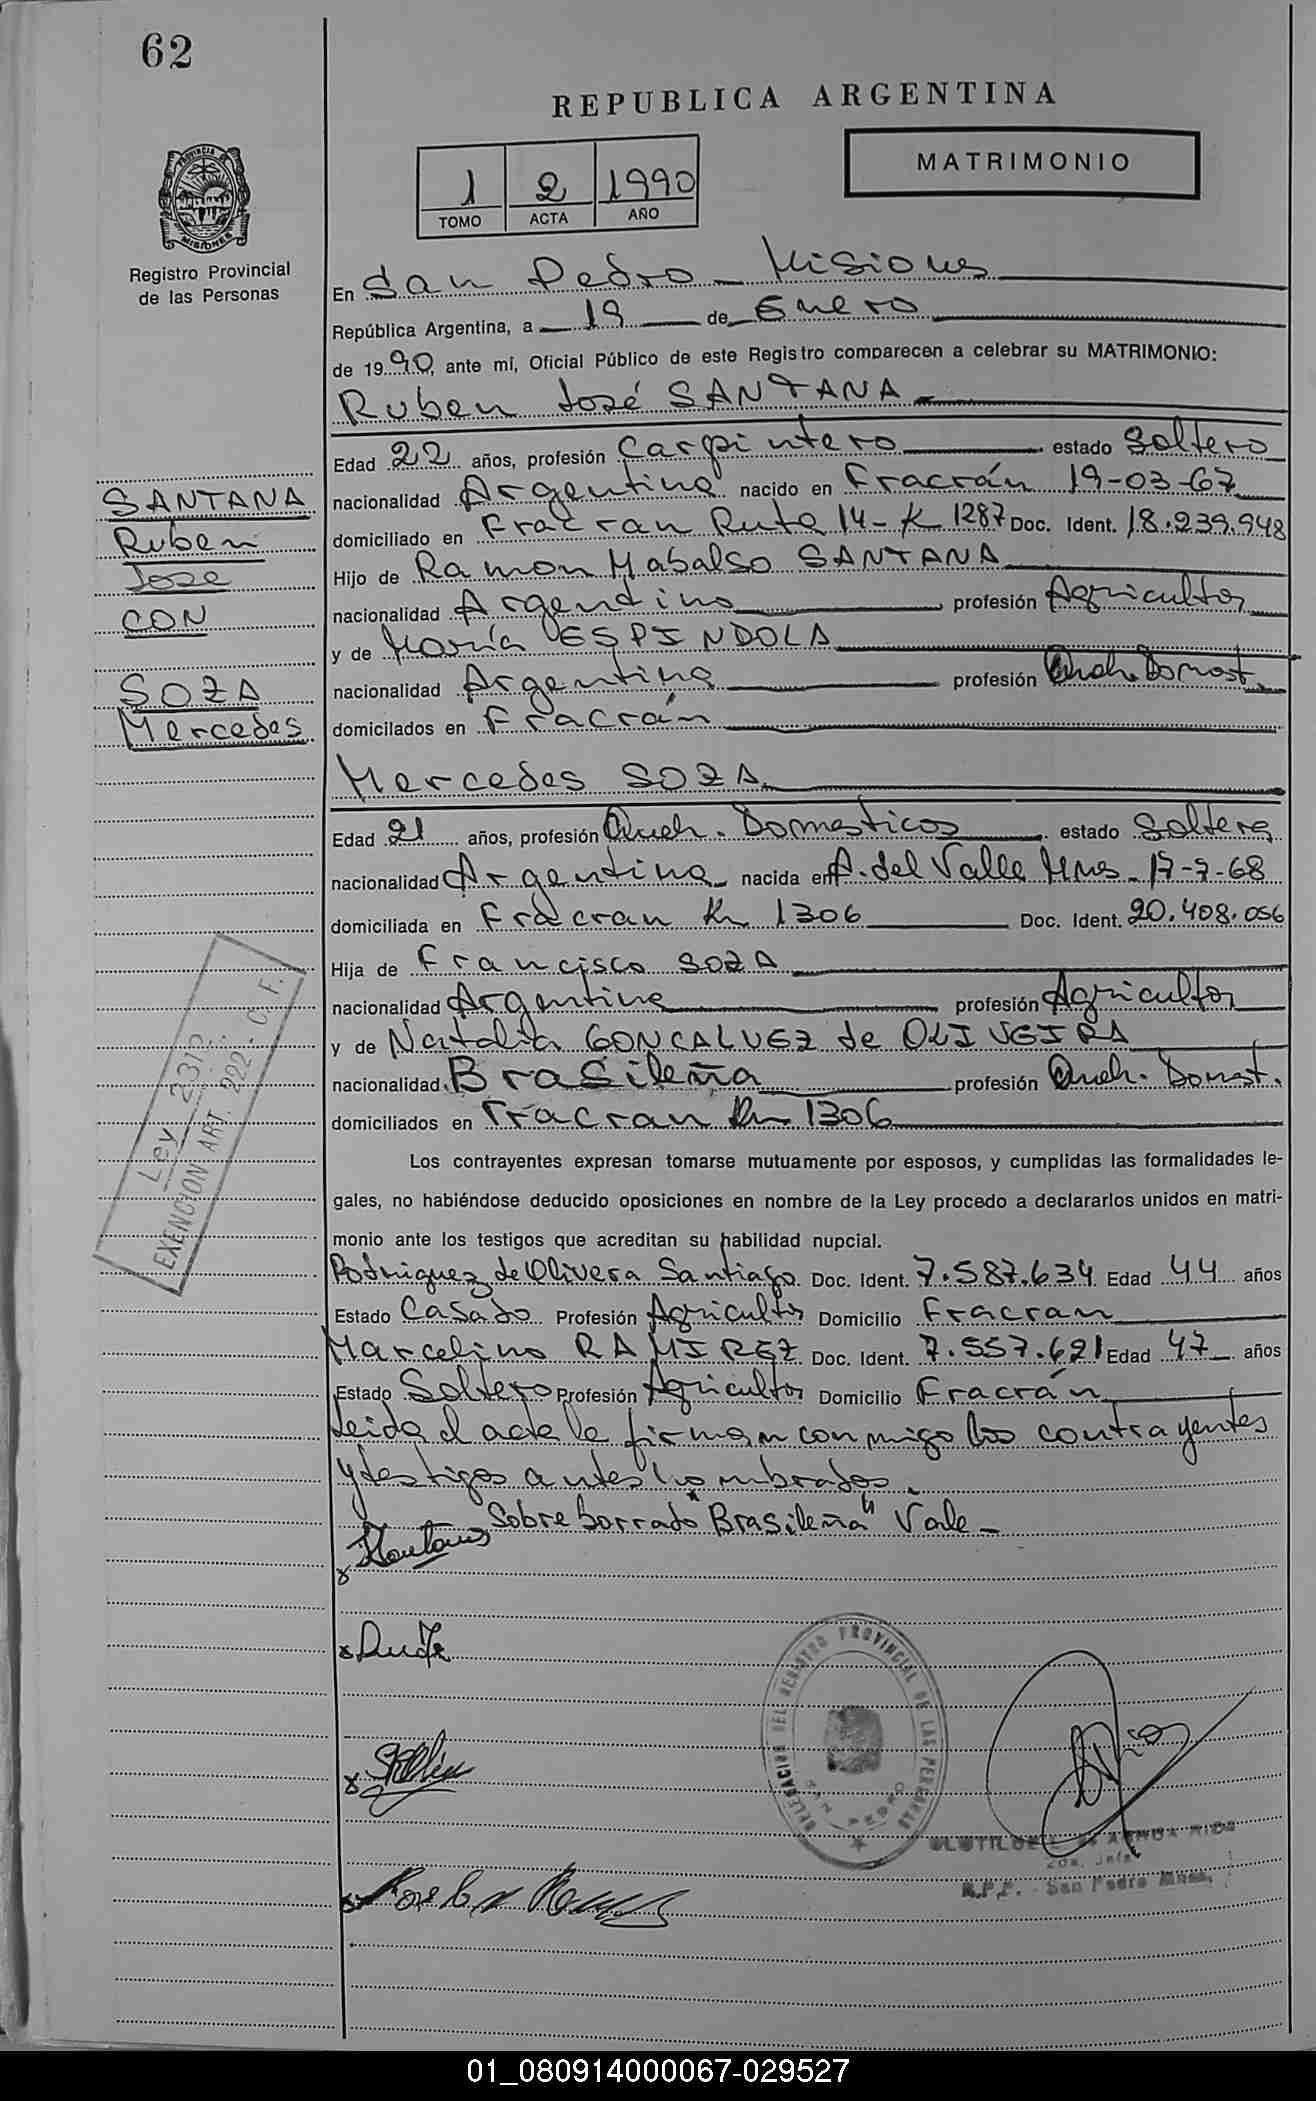 62
REPUBLICA ARGENTINA
MATRIMONIO
1 2 1990
TOMO ACTA AÑO
PROVINCIA DE MISIONES
Registro Provincial
de las Personas
En San Pedro - Misiones
República Argentina, a 19 de Enero
de 1990, ante mí, Oficial Público de este Registro comparecen a celebrar su MATRIMONIO:
Ruben José SANTANA
Edad 22 años, profesión Carpintero estado Soltero
nacionalidad Argentina nacido en Fracrán 19-03-67
domiciliado en Fracran Ruta 14-K 1287 Doc. Ident. 18.239.948
Hijo de Ramon Mabalso SANTANA
nacionalidad Argentino profesión Agricultor
y de María ESPINDOLA
nacionalidad Argentina profesión Queh. Domest.
domicilados en Fracrán
SANTANA
Ruben
Jose
CON
SOZA
Mercedes
Mercedes SOZA
Edad 21 años, profesión Queh. Domesticos estado Soltera
nacionalidad Argentina nacida en A. del Valle Mnes. 17-7-68
domiciliada en Fracran Km 1306 Doc. Ident. 20.408.056
Hija de Francisco SOZA
nacionalidad Argentina profesión Agricultor
y de Natalia GONCALVEZ de OLIVEIRA
nacionalidad Brasileña profesión Queh. Domest.
domiciliados en Fracran Km 1306
Ley 2310
EXENCION ART. 222 - C. F.
Los contrayentes expresan tomarse mutuamente por esposos, y cumplidas las formalidades le-
gales, no habiéndose deducido oposiciones en nombre de la Ley procedo a declararlos unidos en matri-
monio ante los testigos que acreditan su habilidad nupcial.
Rodriguez de Olivera Santiago Doc. Ident. 7.587.634 Edad 44 años
Estado Casado Profesión Agricultor Domicilio Fracran
Marcelino RAMIREZ Doc. Ident. 7.557.621 Edad 47 años
Estado Soltero Profesión Agricultor Domicilio Fracrán
Leida el acta la firman conmigo los contrayentes
y testigos antes nombrados.
Sobreborrado "Brasileña" Vale -
DELEGACION DEL REGISTRO PROVINCIAL DE LAS PERSONAS
SAN PEDRO
R.P.P. San Pedro Mnes.
01_080914000067-029527